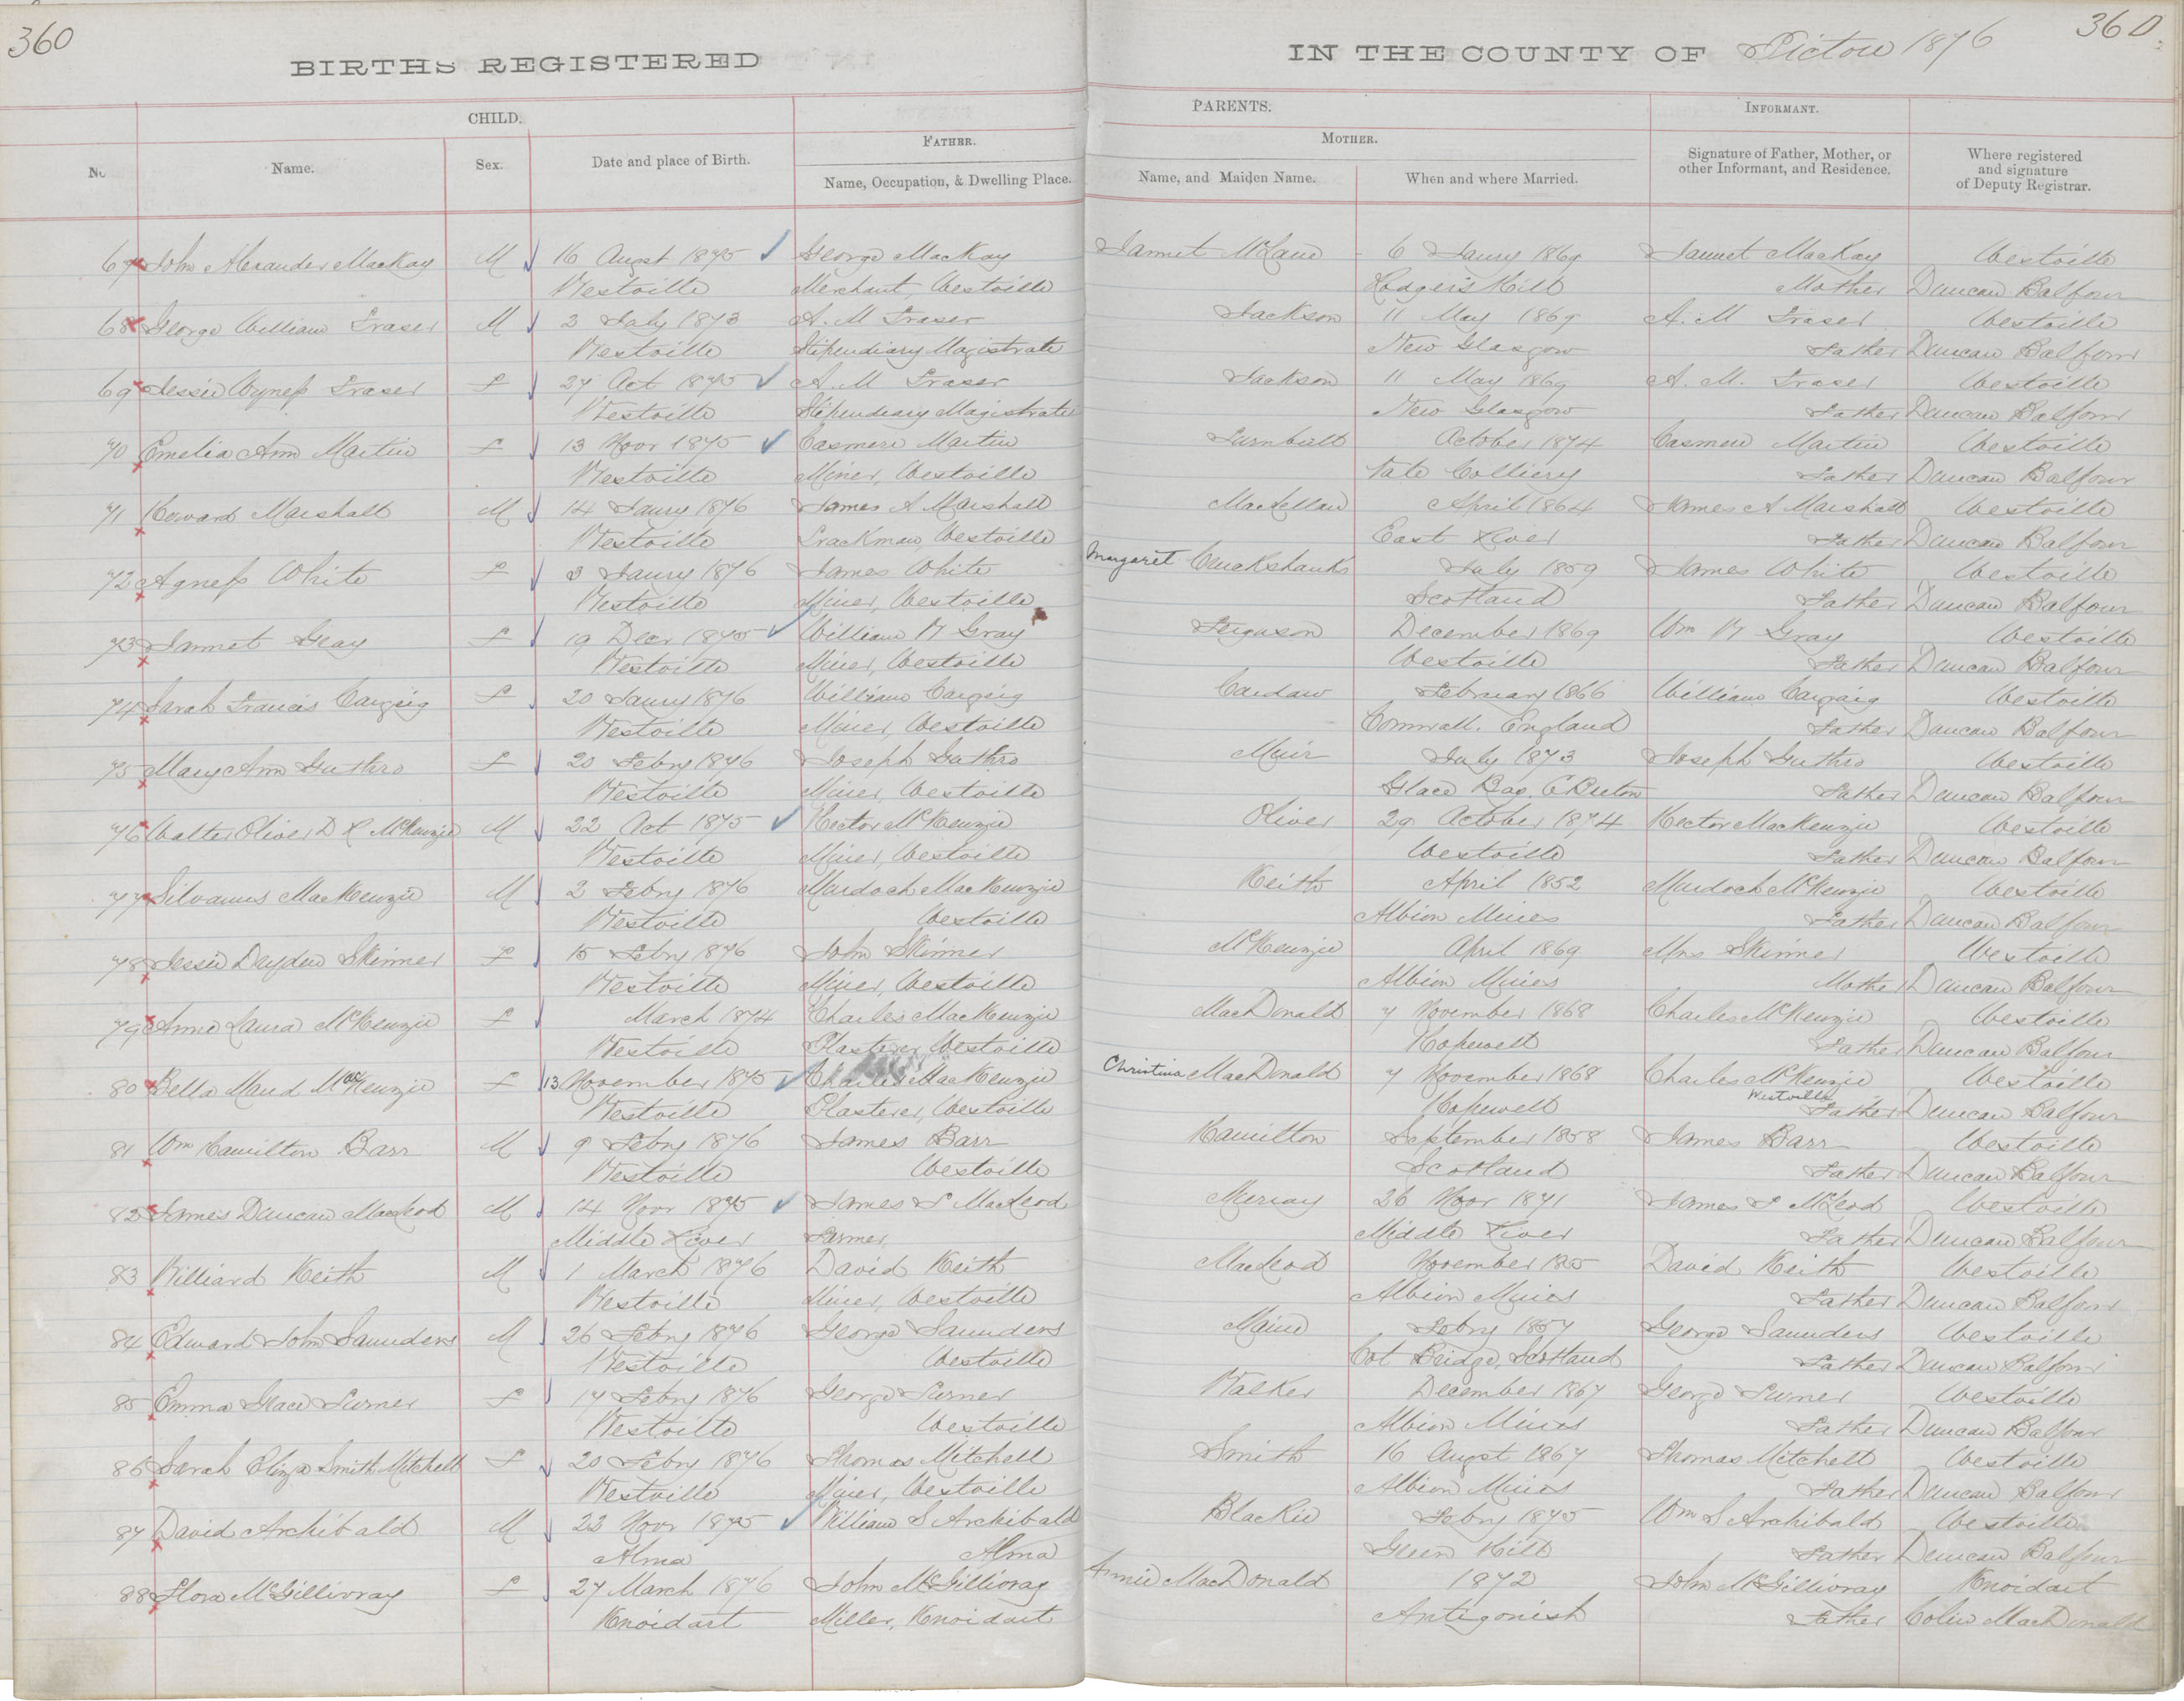 360
BIRTHS REGISTERED
IN THE COUNTY OF Pictou 1876
360
CHILD.
PARENTS.
INFORMANT.
No
Name.
Sex.
Date and place of Birth.
FATHER.
Name, Occupation, & Dwelling Place.
MOTHER.
Name, and Maiden Name.
When and where Married.
Signature of Father, Mother, or other Informant, and Residence.
Where registered and signature of Deputy Registrar.
67 John Alexander MacKay M 16 Augst 1875 George MacKay Jannet McLane 6 Jany 1869 Jannet MacKay Westville
Westville Merchant, Westville Rodgers Hill Mother Duncan Balfour
68 George William Fraser M 3 July 1873 A. M Fraser Jackson 11 May 1869 A. M Fraser Westville
Westville Stipendiary Magistrate New Glasgow Father Duncan Balfour
69 Jessie Fraser F 27 Oct 1875 A. M Fraser Jackson 11 May 1869 A. M. Fraser Westville
Westville Stipendeary Magistrate New Glasgow Father Duncan Balfour
70 Emelia Ann Martin F 13 Novr 1875 Casmere Martin Turnbull October 1874 Casmere Martin Westville
Westville Miner, Westville Vale Colliery Father Duncan Balfour
71 Howard Marshall M 14 Jany 1876 James A Marshall MacKellan April 1864 James A Marshall Westville
Westville Trackman, Westville East River Father Duncan Balfour
72 Agness White F 3 Jany 1876 James White Margaret Cruckshanks July 1859 James White Westville
Westville Miner, Westville Scotland Father Duncan Balfour
73 Jannet Gray F 19 Decr 1875 William N Gray Ferguson December 1869 Wm N Gray Westville
Westville Miner, Westville Westville Father Duncan Balfour
74 Sarah Francis F 20 Jany 1876 William February 1866 William Westville
Westville Miner, Westville Cornwall. England Father Duncan Balfour
75 Mary Ann Guthro F 20 Febry 1876 Joseph Guthro Muir July 1873 Joseph Guthro Westville
Westville Miner, Westville Glace Bay, C Breton Father Duncan Balfour
76 Walter Oliver D R McKenzie M 22 Oct 1875 Hector McKenzie Oliver 29 October 1874 Hector MacKenzie Westville
Westville Miner, Westville Westville Father Duncan Balfour
77 Silvanus MacKenzie M 2 Febry 1876 Murdoch MacKenzie Keith April 1852 Murdoch McKenzie Westville
Westville Westville Albion Mines Father Duncan Balfour
78 Jessie Dryden Skinner F 15 Febry 1876 John Skinner McKenzie April 1869 Mrs Skinner Westville
Westville Miner, Westville Albion Mines Mother Duncan Balfour
79 Anne Laura McKenzie F March 1874 Charles MacKenzie MacDonald 7 November 1868 Charles McKenzie Westville
Westville Plasterer, Westville Hopewell Father Duncan Balfour
80 Bella Maud MacKenzie F 13 November 1875 Charles MacKenzie Christina MacDonald 7 November 1868 Charles McKenzie Westville
Westville Plasterer, Westville Hopewell Westville Father Duncan Balfour
81 Wm Hamilton Barr M 9 Febry 1876 James Barr Hamilton September 1858 James Barr Westville
Westville Westville Scotland Father Duncan Balfour
82 James Duncan MacLeod M 14 Novr 1875 James F MacLeod Murray 26 Novr 1871 James F McLeod Westville
Middle River Farmer, Middle River Father Duncan Balfour
83 Williard Keith M 1 March 1876 David Keith MacLeod November David Keith Westville
Westville Miner, Westville Albion Mines Father Duncan Balfour
84 Edward John Saunders M 26 Febry 1876 George Saunders Febry 1857 George Saunders Westville
Westville Westville Cot Bridge, Scotland Father Duncan Balfour
85 Emma Grace Turner F 17 Febry 1876 George Turner Walker December 1867 George Turner Westville
Westville Westville Albion Mines Father Duncan Balfour
86 Sarah Eliza Smith Mitchell F 20 Febry 1876 Thomas Mitchell Smith 16 Augst 1867 Thomas Mitchell Westville
Westville Miner, Westville Albion Mines Father Duncan Balfour
87 David Archibald M 22 Novr 1875 William S Archibald Blackie Febry 1875 Wm S Archibald Westville
Alma Alma Green Hill Father Duncan Balfour
88 Flora McGillivray F 27 March 1876 John McGillivray Annie MacDonald 1872 John McGillivray Knoidart
Knoidart Miller, Knoidart Antigonish Father Colin MacDonald